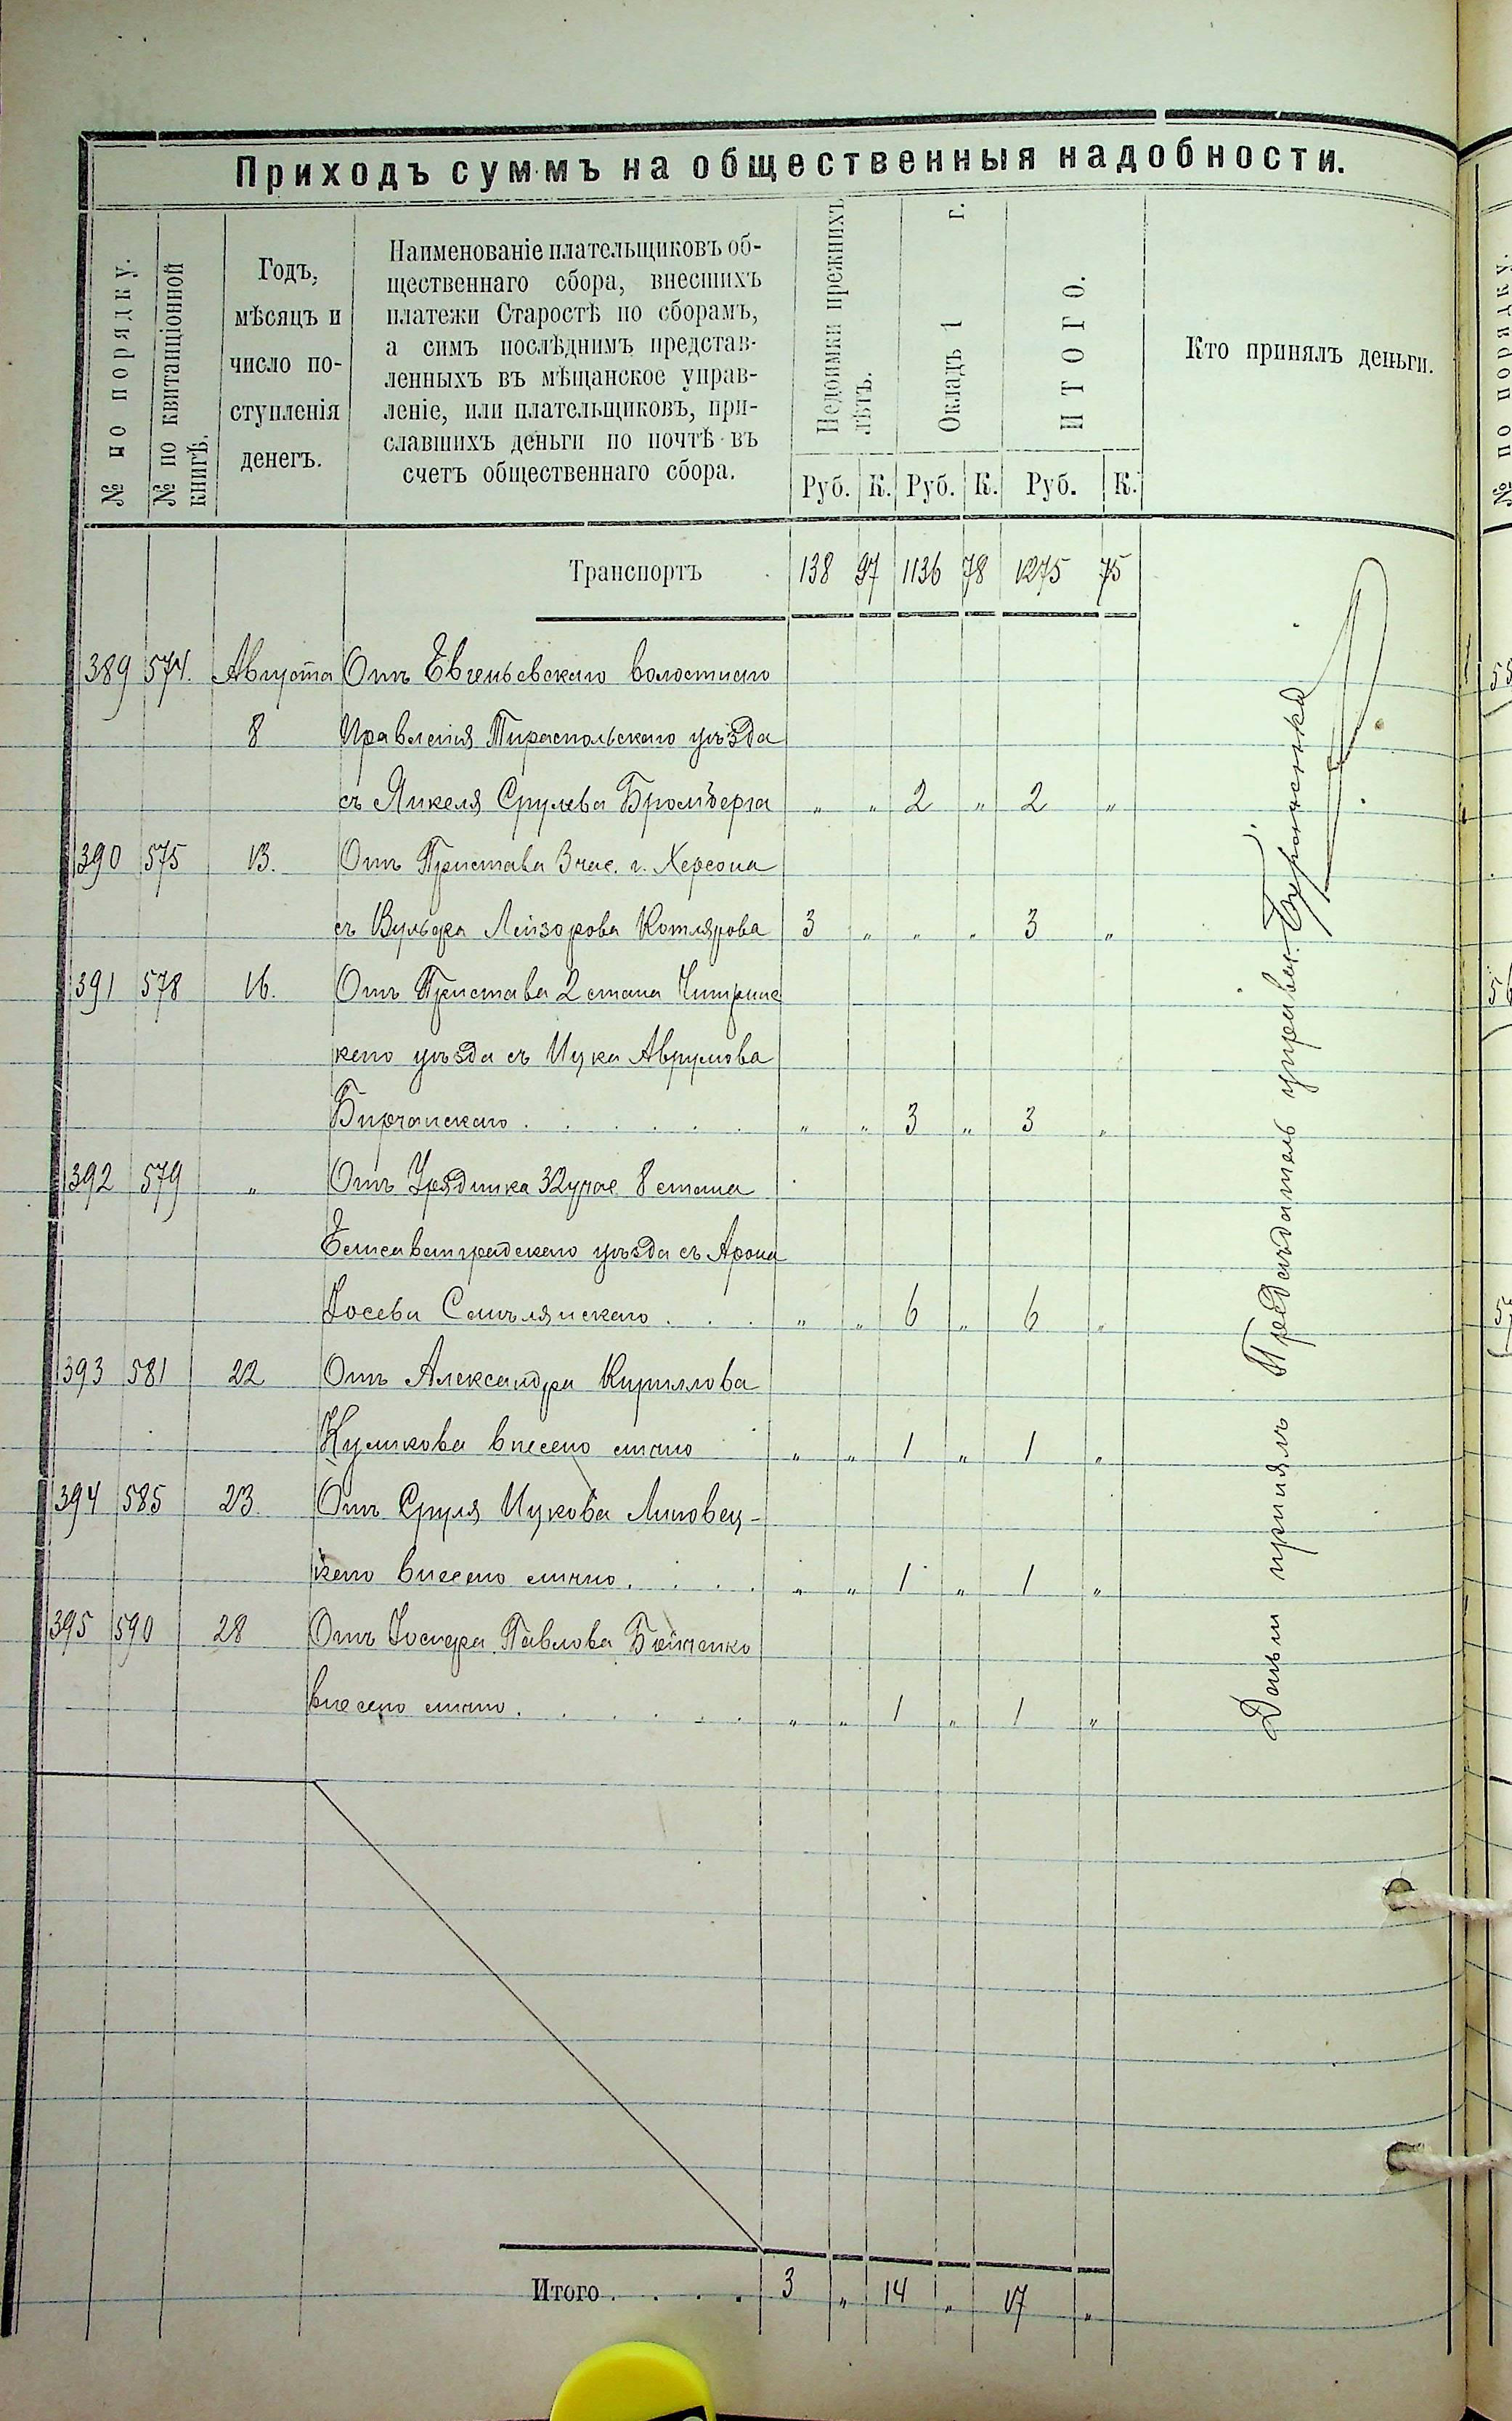 Приходъ суммъ на общественныя надобности.
№ по порядку.
№ по квитанціонной книгѣ.
Годъ, мѣсяцъ и число поступленія денегъ.
Наименованіе плательщиковъ об-
щественнаго сбора, внесшихъ
платежи Старостѣ по сборамъ,
а симъ послѣднимъ представ-
ленныхъ въ мѣщанское управ-
леніе, или плательщиковъ, при-
славшихъ деньги по почтѣ въ
счетъ общественнаго сбора.
Недоимки прежнихъ лѣтъ.
Окладъ 1 г.
ИТОГО.
Кто принялъ деньги.
Руб. К. Руб. К. Руб. К.
Транспортъ 138 97 1136 78 1275 75
389 574. Августа Отъ Евгеньевскаго волостнаго
8 Правленія Тираспольскаго уѣзда
съ Янкеля Срулева Бромберга „ „ 2 „ 2 „
390 575 13. Отъ Пристава 3 час. г. Херсона
съ Вульфа Лейзорова Котлярова 3 „ „ „ 3 „
391 578 16. Отъ Пристава 2 стана Чигринс
каго уѣзда съ Ицка Аврумова
Бирчанскаго . . . . . . „ „ 3 „ 3 „
392 579 „ Отъ Урядника 32 учас. 8 стана
Елисаветградскаго уѣзда съ Арона
Іосева . . . „ „ 6 „ 6 „
393 581 22 Отъ Александра Кириллова
Куликова внесено лично „ „ 1 „ 1 „
394 585 23. Отъ Сруля Ицкова Липовец-
каго внесено лично . . . . „ „ 1 „ 1 „
395 590 28 Отъ Іосифа Павлова Бойченко
внесено лично . . . . . . „ „ 1 „ 1 „
Деньги принялъ Предсѣдатель управл.
Итого . . . . 3 „ 14 „ 17 „